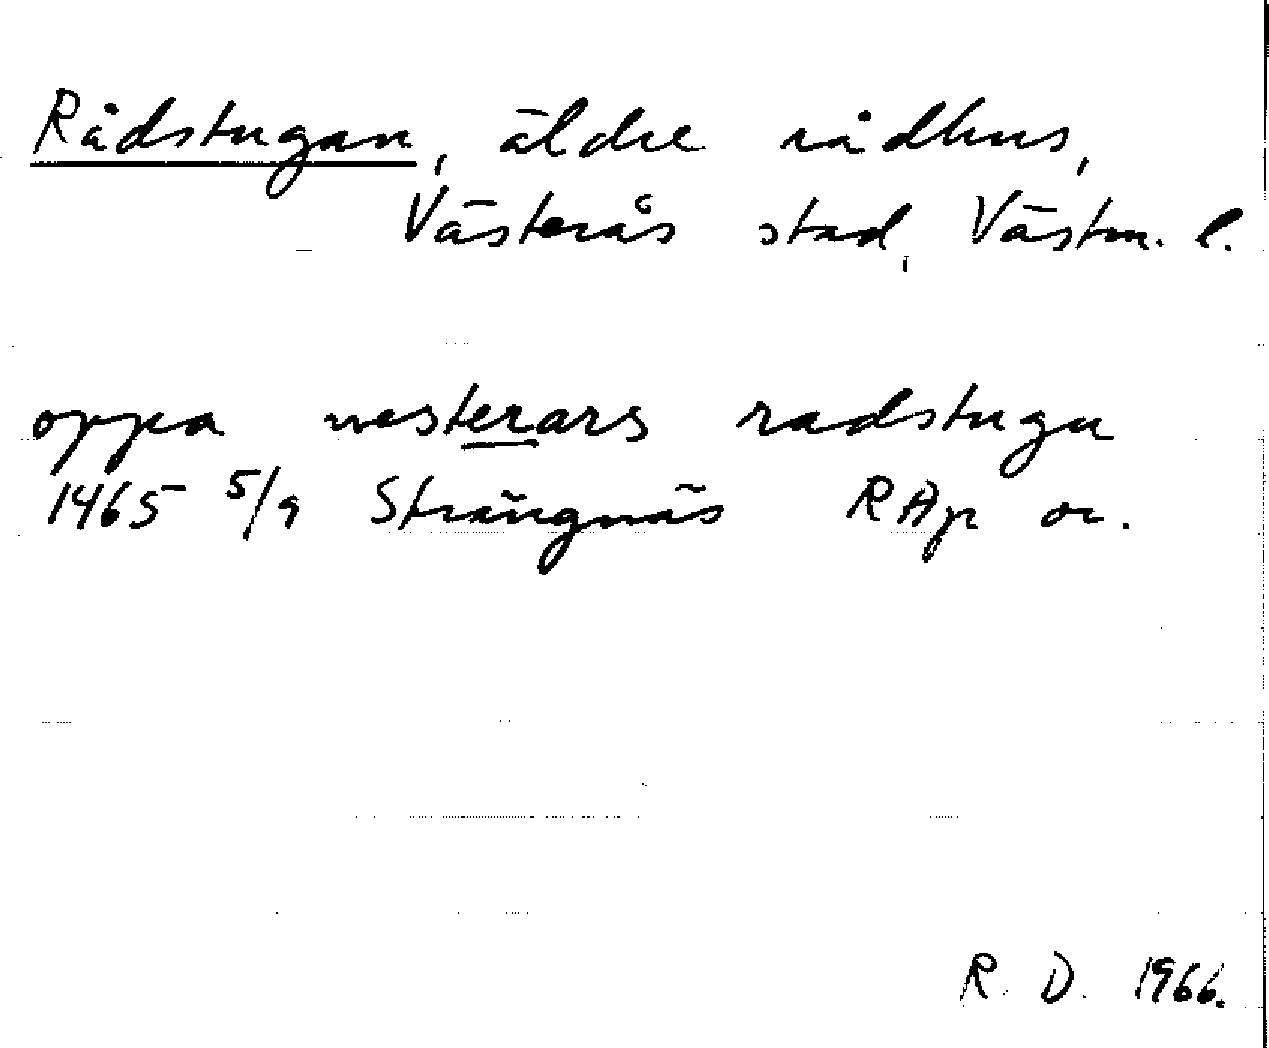 Rådstugan, äldre rådhus,
Västerås stad, Västm. l.
oppa westerars radstugu
1465 5/9 Strängnäs RAp or.
R. D. 1966.